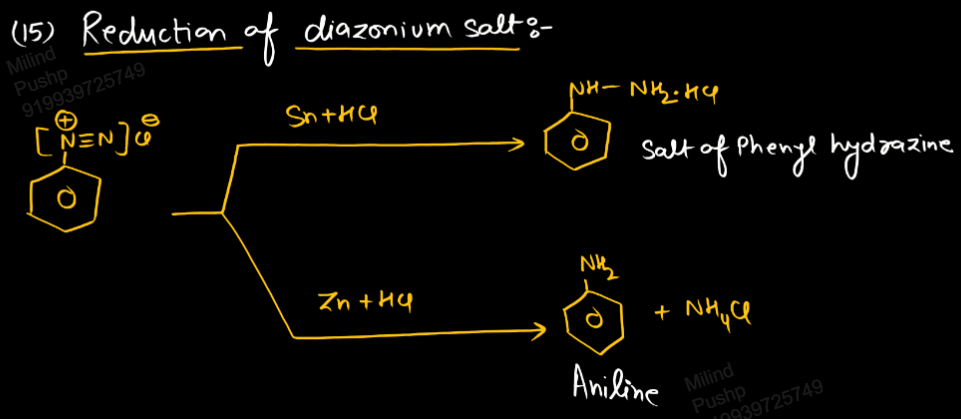 (15) Reduction of diazonium salt :-
Milind
Pushp
919939725749
[N⊕≡N]Cl⊖
Sn+HCl
NH-NH₂·HCl
Salt of Phenyl hydrazine
Zn+HCl
NH₂
+ NH₄Cl
Aniline
Milind
Pushp
919939725749